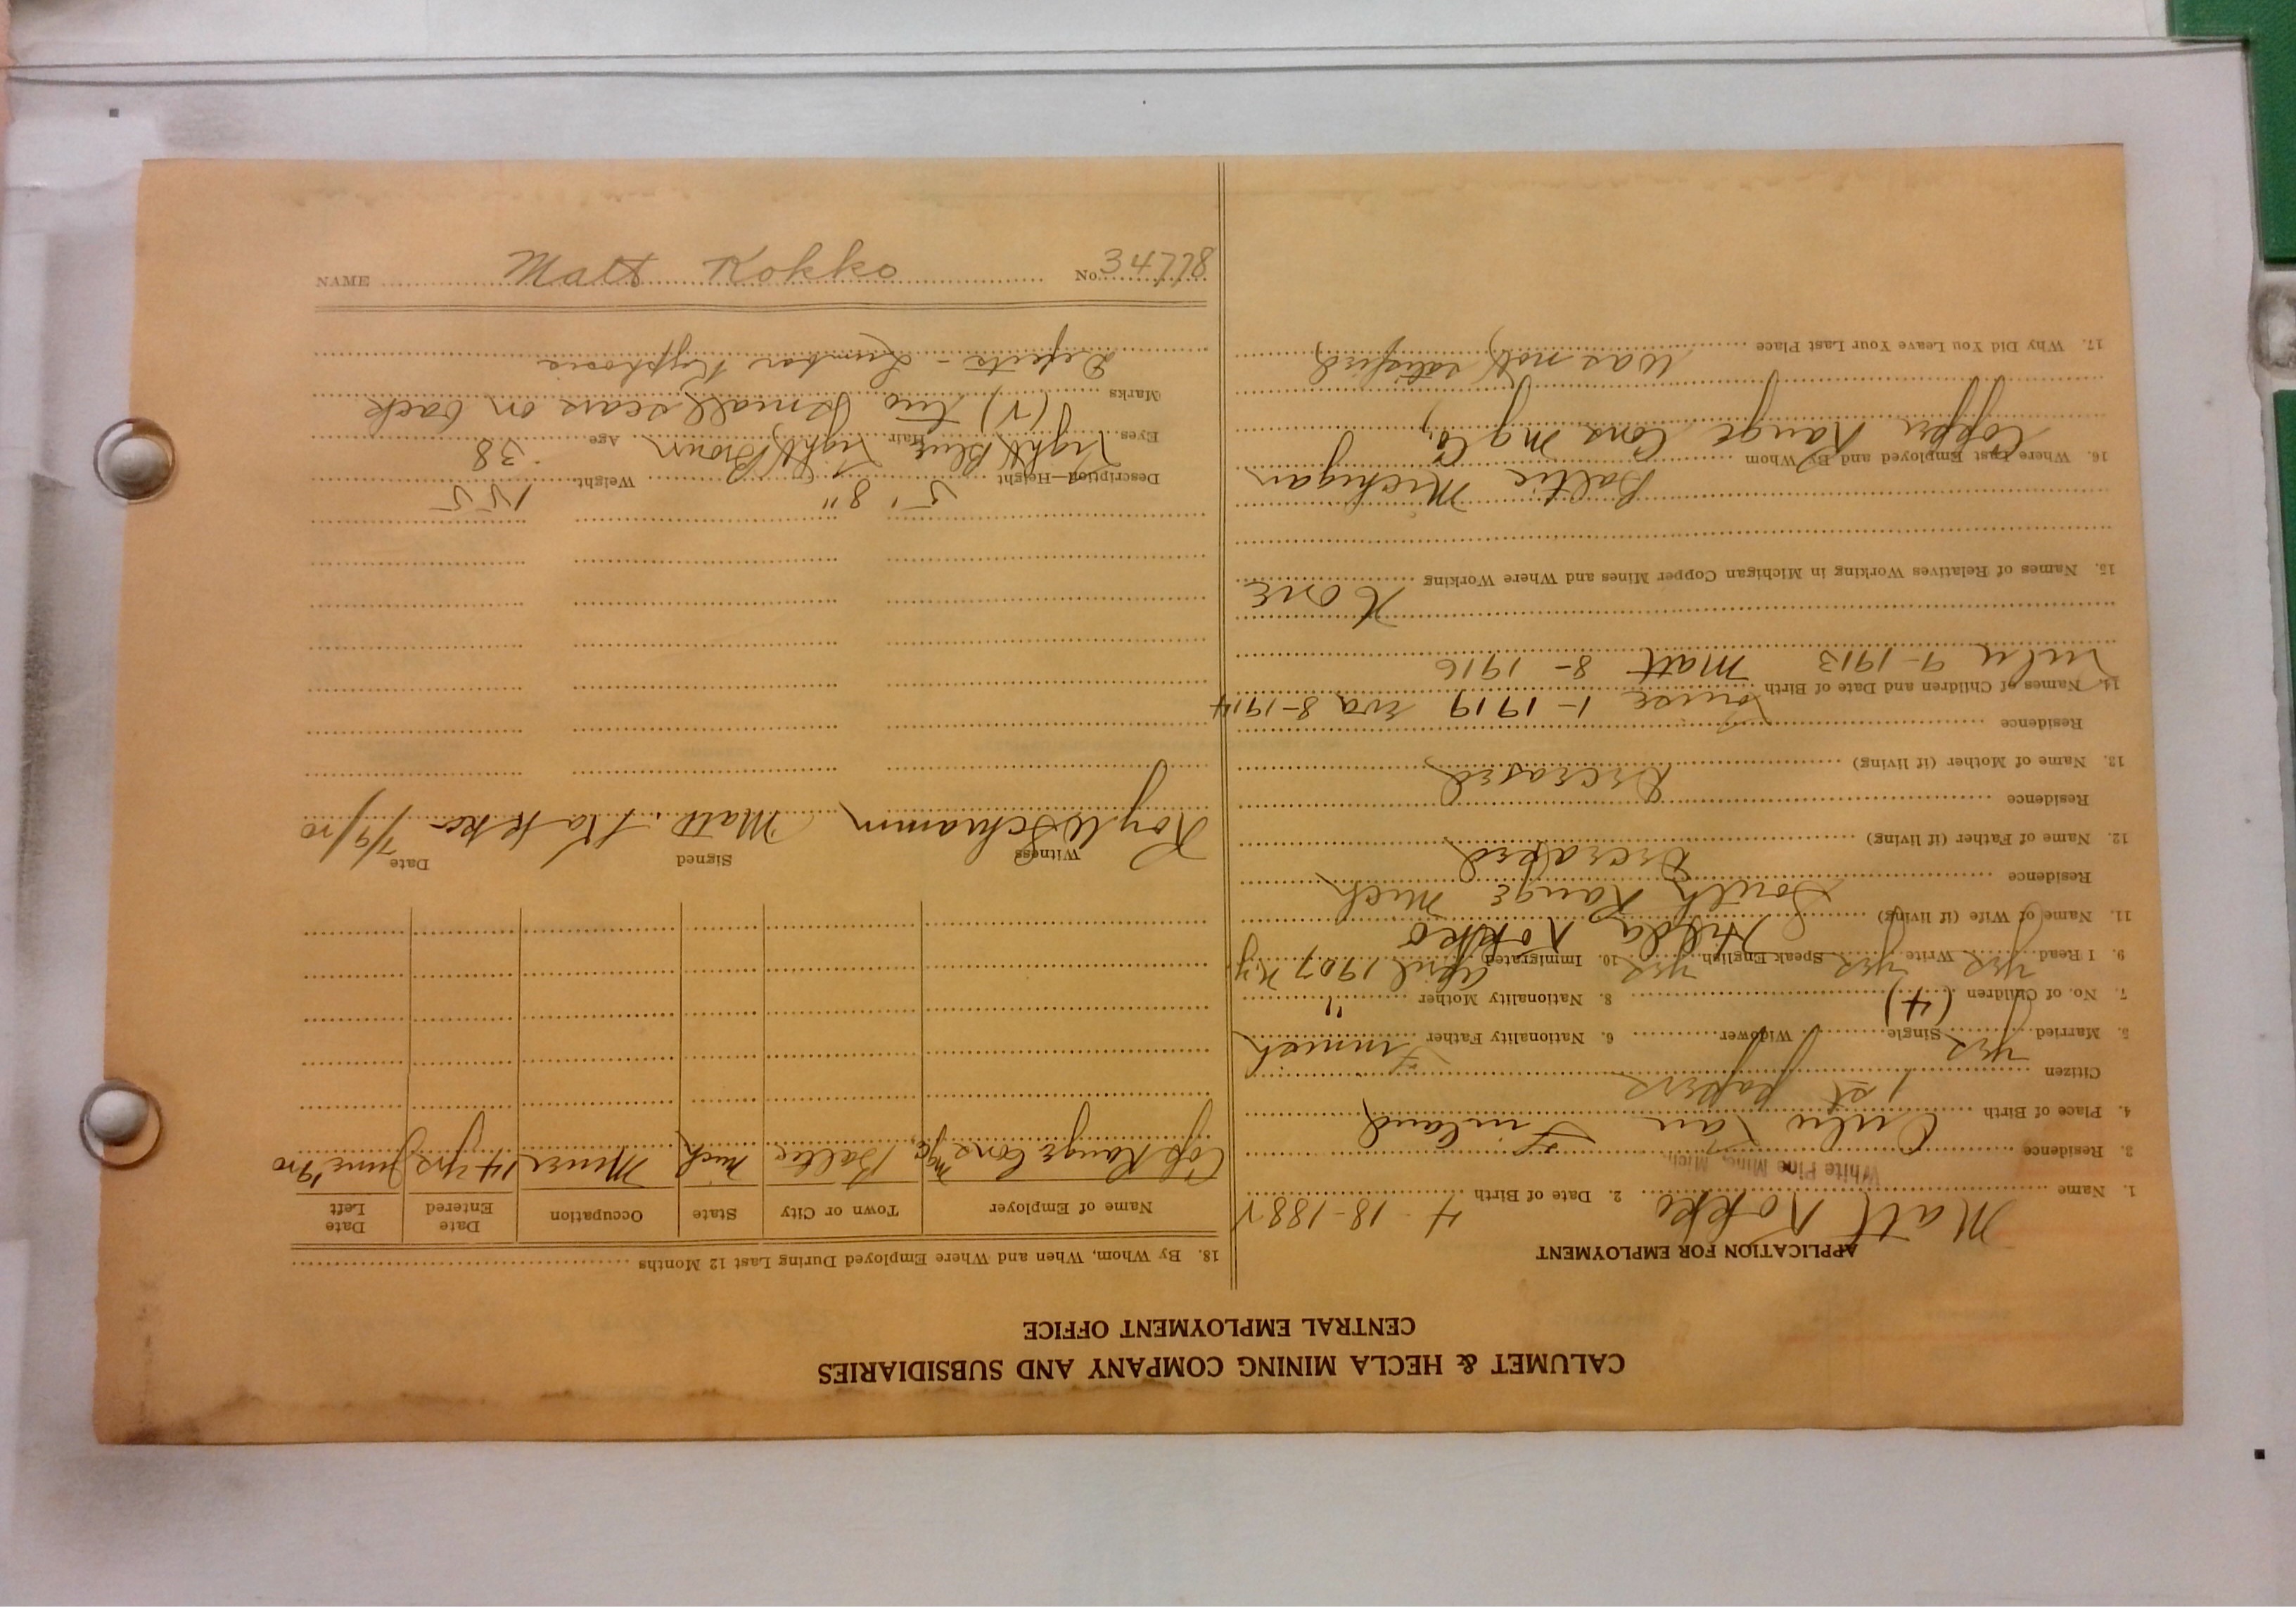 CALUMET & HECLA MINING COMPANY AND SUBSIDIARIES
CENTRAL EMPLOYMENT OFFICE
APPLICATION FOR EMPLOYMENT
1. Name Matt Kokko 2. Date of Birth 4-18-1882
3. Residence White Pine Mine, Mich.
4. Place of Birth Oulu Lan Finland
Citizen 1st papers
5. Married yes Single Widower 6. Nationality Father Finnish
7. No. of Children (4) 8. Nationality Mother "
9. I Read yes Write yes Speak English yes 10. Immigrated April 1907 N.Y.
11. Name of Wife (if living) Hilda Kokko
Residence South Range Mich
12. Name of Father (if living) Deceased
Residence
13. Name of Mother (if living) Deceased
Residence
14. Names of Children and Date of Birth Louise 1-1919 Eva 8-1914
9-1913 Matt 8-1916
15. Names of Relatives Working in Michigan Copper Mines and Where Working None
Baltic Michigan
16. Where Last Employed and By Whom
Copper Range Cons Mg Co,
17. Why Did You Leave Your Last Place Was not satisfied
18. By Whom, When and Where Employed During Last 12 Months
Name of Employer Town or City State Occupation Date Entered Date Left
Cop Range Cons Mg Co Baltic Mich Miner 14 yrs June 1920
Witness Signed Date
Roy W Schramm Matt. Kokko 7/9/20
Description—Height 5' 8" Weight 155
Eyes Light Blue Hair Light Brown Age 38
Marks (V) two small scars on back
Defects - Lumbar Kyphosis
NAME Matt Kokko No. 34778